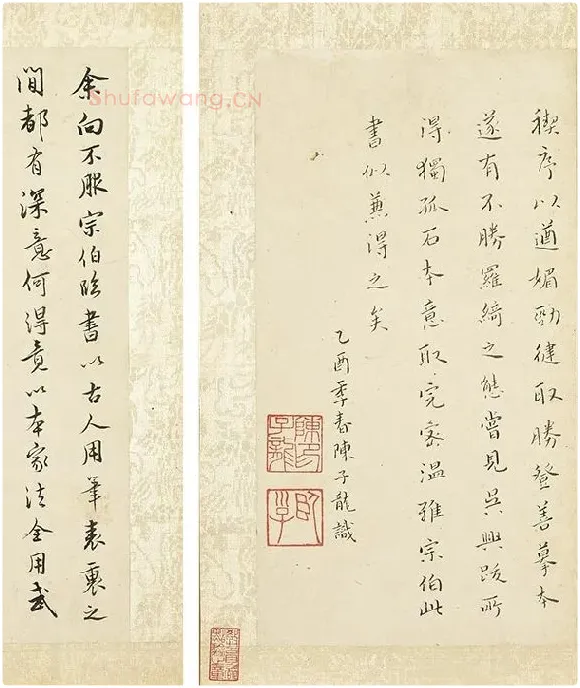 禊序以遒媚勁健取勝登善摹本
遂有不勝羅綺之態嘗見吳興跋所
得獨孤石本意取完密溫雅宗伯此
書似兼得之矣
乙酉季春陳子龍識
陳印子龍
臥子
余向不服宗伯臨書以古人用筆表裏之
間都有深意何得竟以本家法全用
Shufawang.CN